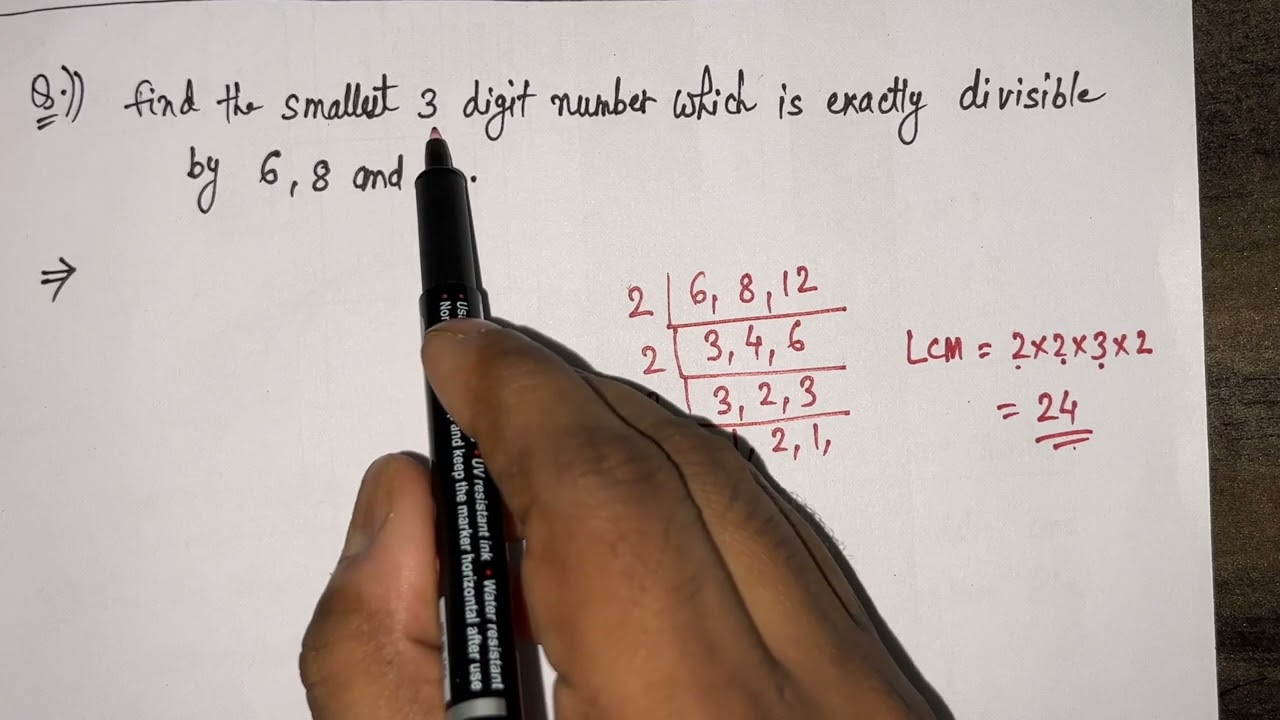 Q.)) find the smallest 3 digit number which is exactly divisible
by 6, 8 and .
⇒
2 | 6, 8, 12
2 | 3, 4, 6
3, 2, 3
2, 1,
LCM = 2×2×3×2
= 24
UV resistant ink • Water resistant
and keep the marker horizontal after use